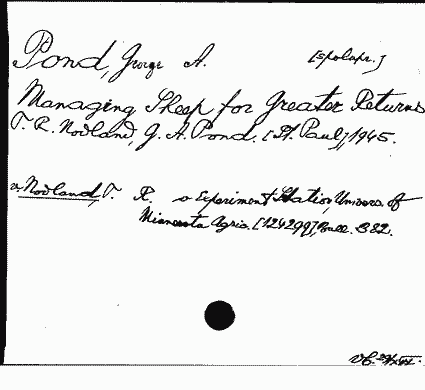 Pond, George A. [spolupr.]
Managing Sheep for Greater Returns
T. R. Nodland, G. A. Pond. [St. Paul], 1945.
a, Nodland, T. R. o Experiment Station, Univers. of
Minnesota Agric. [124299], Bull. 382.